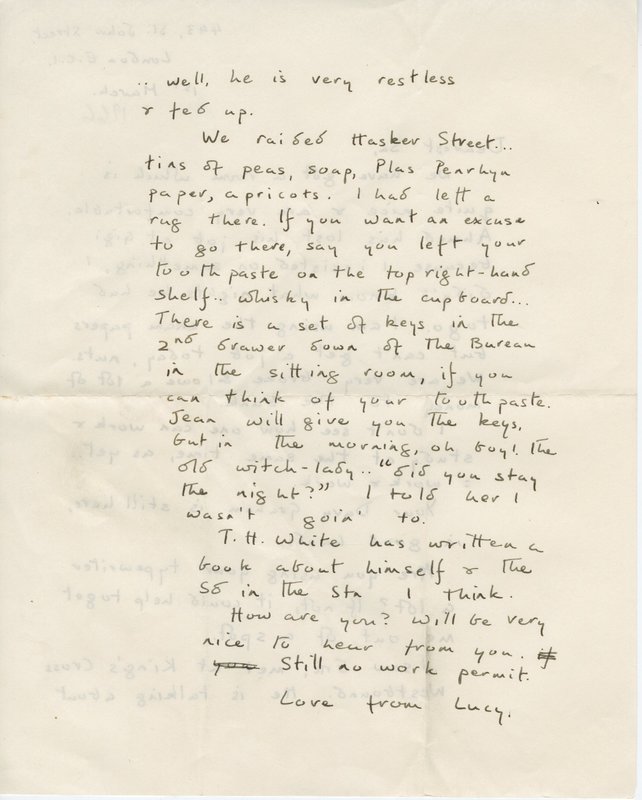 .. well, he is very restless
& fed up.
We raided Hasker Street...
tins of peas, soap, Plas Penrhyn
paper, apricots. I had left a
rug there. If you want an excuse
to go there, say you left your
toothpaste on the top right-hand
shelf.. whisky in the cupboard...
There is a set of keys in the
2nd drawer down of the Bureau
in the sitting room, if you
can think of your toothpaste.
Jean will give you the keys,
but in the morning, oh boy! the
old witch-lady.. "did you stay
the night?" I told her I
wasn't goin' to.
T.H. White has written a
book about himself & the
in the I think.
How are you? Will be very
nice to hear from you. if
you Still no work permit.
Love from Lucy.